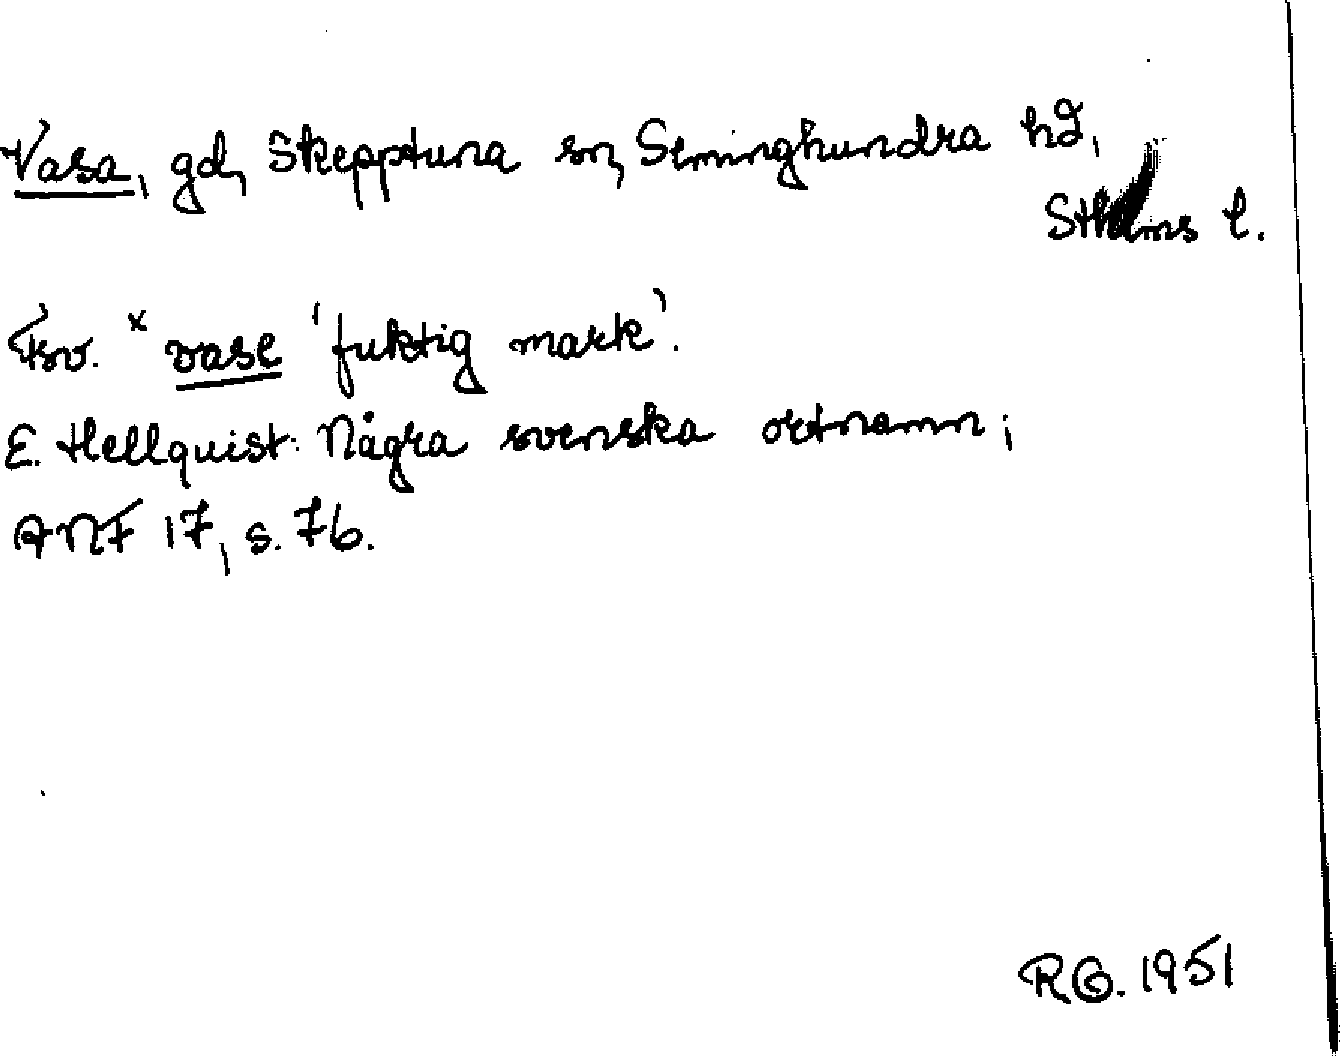 Vasa, gd, Skepptuna sn, Seminghundra hd,
Sthlms l.
Fsv. *vase 'fuktig mark'.
E. Hellquist: Några svenska ortnamn;
ANF 17, s. 76.
RG. 1951